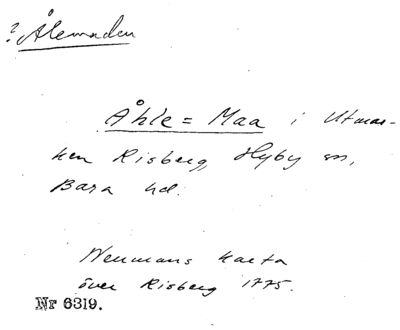 ? Ålemaden
Åhle = Maa i Utmar-
ken Risberg, Hyby sn,
Bara hd.
Neumans karta
över Risberg 1775.
Nr 6319.